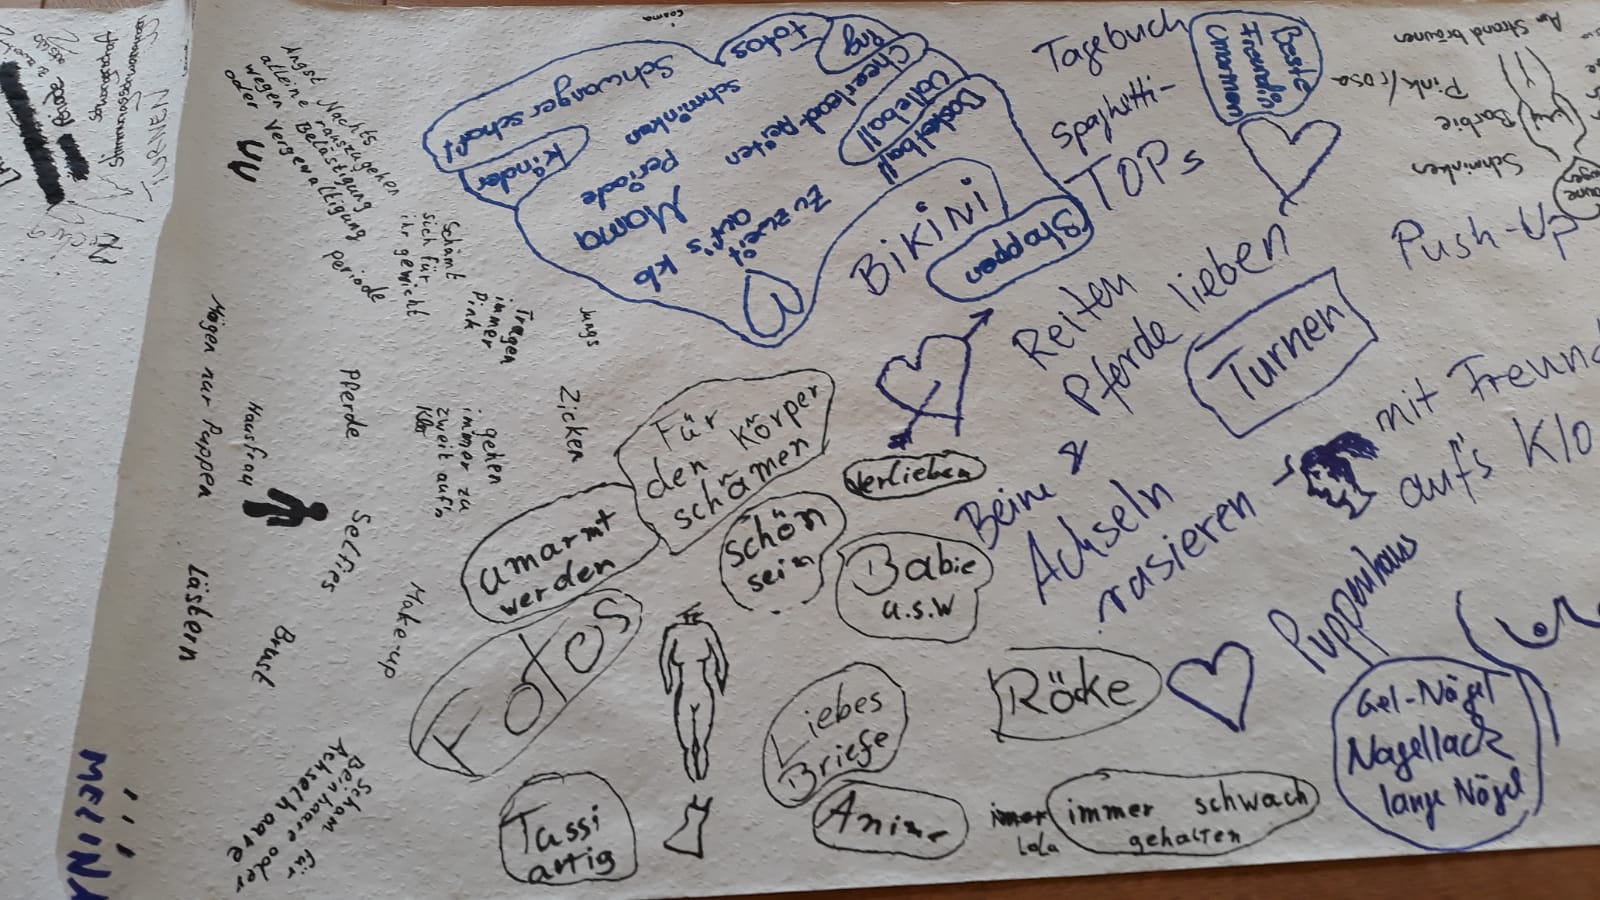 Cosma
Schwangerschaft
Kinder
Fotos
eng
Cheerlead
Volleyball
Basketball
Reiten
schminken
Periode
Mama
Zu zweit
auf's
Shoppen
BIKINI
Tagebuch
Spaghetti-
TOPs
Beste
Freundin
Umarmen
Am Strand bräunen
Pink/rosa
Barbie
Schminken
Push-Up
Reiten
Pferde lieben
Turnen
Beine &
Achseln
rasieren
mit Freund
auf's Klo
Puppenhaus
Gel-Nägel
Nagellack
lange Nägel
Angst Nachts
alleine rauszugehen
wegen Belästigung
oder Vergewaltigung
periode
Schämt
sich für
ihr gewicht
Tragen
immer
Pink
Jungs
Zicken
gehen
immer zu
zweit auf's
Klo
Pferde
Mögen nur Puppen
Hausfrau
Selfies
Lästern
Brust
Make-up
Scham für
Beinhaare oder
Achselhaare
Für
den Körper
schämen
umarmt
werden
schön
sein
verlieben
Babie
u.s.w
Fotos
Liebes
Briefe
Röcke
Anime
Tussi
artig
immer schwach
gehalten
LoLa
MELINA